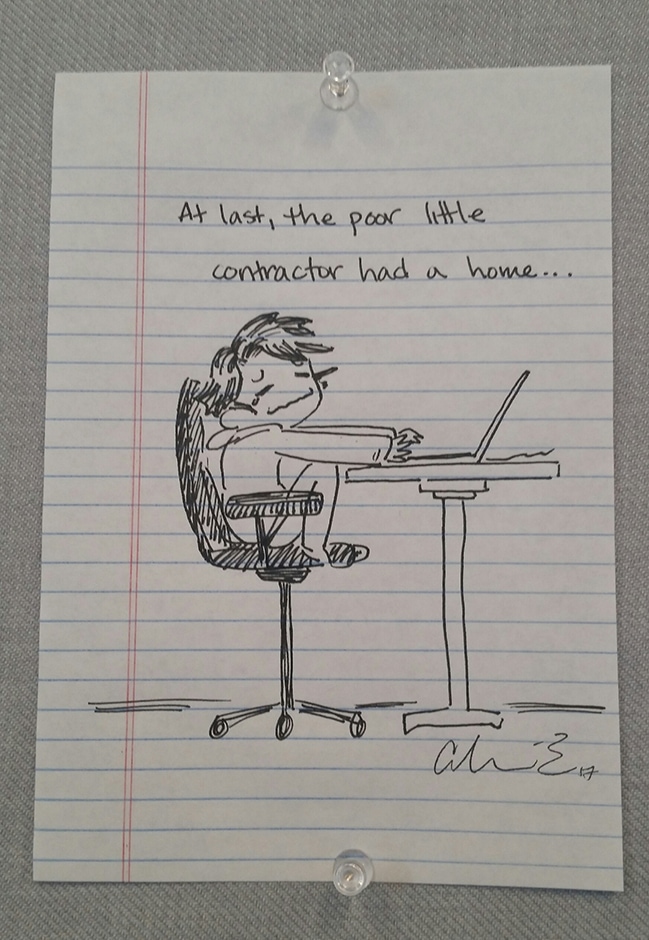 At last, the poor little
contractor had a home...
17